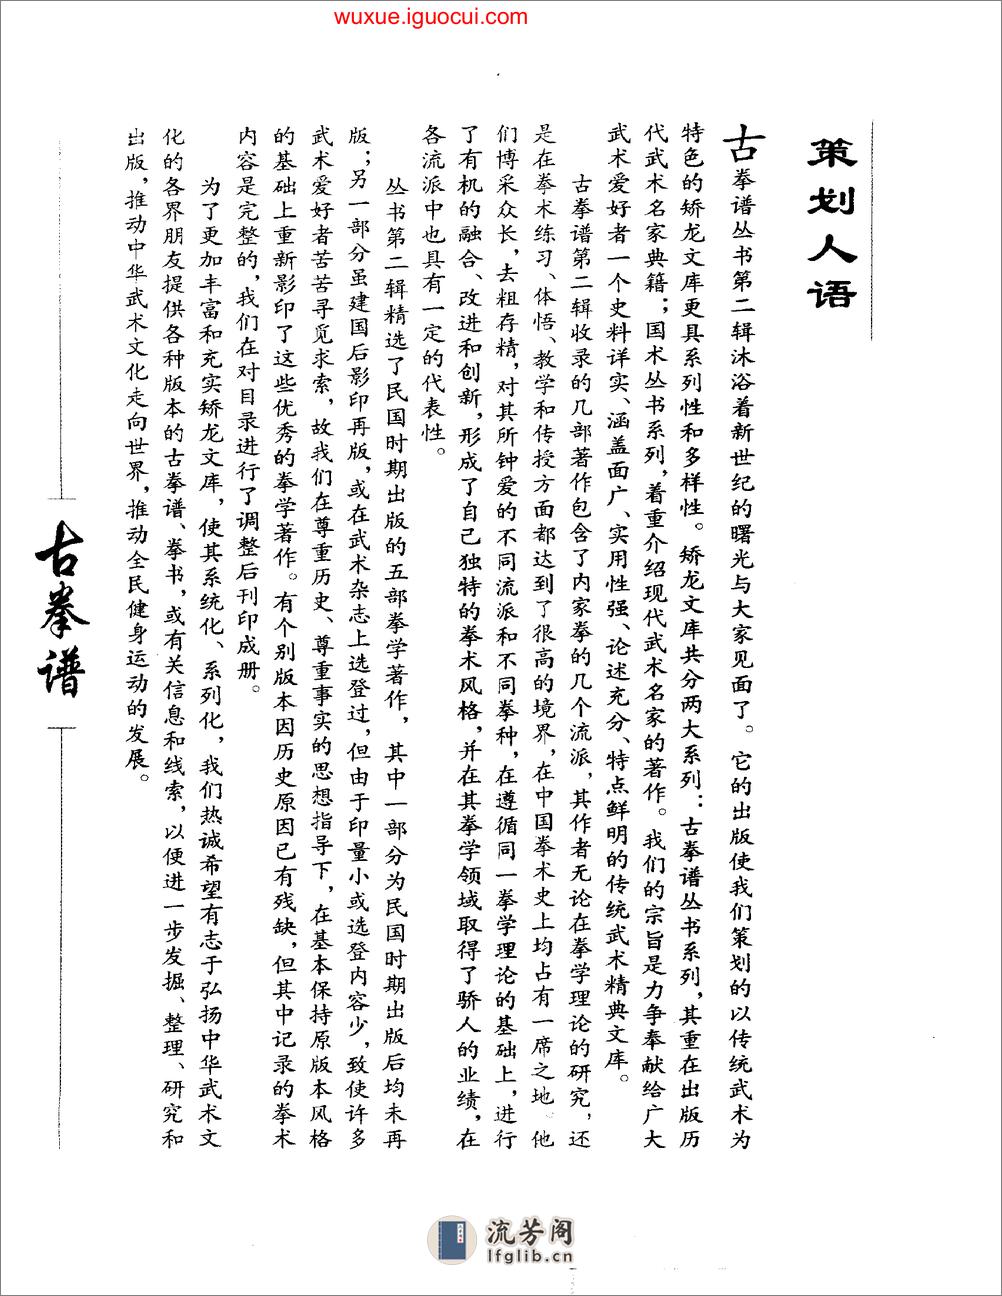 wuxue.iguocui.com
策划人语
古拳谱丛书第二辑沐浴着新世纪的曙光与大家见面了。它的出版使我们策划的以传统武术为
特色的矫龙文库更具系列性和多样性。矫龙文库共分两大系列：古拳谱丛书系列，其重在出版历
代武术名家典籍；国术丛书系列，着重介绍现代武术名家的著作。我们的宗旨是力争奉献给广大
武术爱好者一个史料详实、涵盖面广、实用性强、论述充分、特点鲜明的传统武术精典文库。
古拳谱第二辑收录的几部著作包含了内家拳的几个流派，其作者无论在拳学理论的研究，还
是在拳术练习、体悟、教学和传授方面都达到了很高的境界，在中国拳术史上均占有一席之地。他
们博采众长，去粗存精，对其所钟爱的不同流派和不同拳种，在遵循同一拳学理论的基础上，进行
了有机的融合、改进和创新，形成了自己独特的拳术风格，并在其拳学领域取得了骄人的业绩，在
各流派中也具有一定的代表性。
丛书第二辑精选了民国时期出版的五部拳学著作，其中一部分为民国时期出版后均未再
版；另一部分虽建国后影印再版，或在武术杂志上选登过，但由于印量小或选登内容少，致使许多
武术爱好者苦苦寻觅求索，故我们在尊重历史、尊重事实的思想指导下，在基本保持原版本风格
的基础上重新影印了这些优秀的拳学著作。有个别版本因历史原因已有残缺，但其中记录的拳术
内容是完整的，我们在对目录进行了调整后刊印成册。
为了更加丰富和充实矫龙文库，使其系统化、系列化，我们热诚希望有志于弘扬中华武术文
化的各界朋友提供各种版本的古拳谱、拳书，或有关信息和线索，以便进一步发掘、整理、研究和
出版，推动中华武术文化走向世界，推动全民健身运动的发展。
古拳谱
流芳阁
lfglib.cn